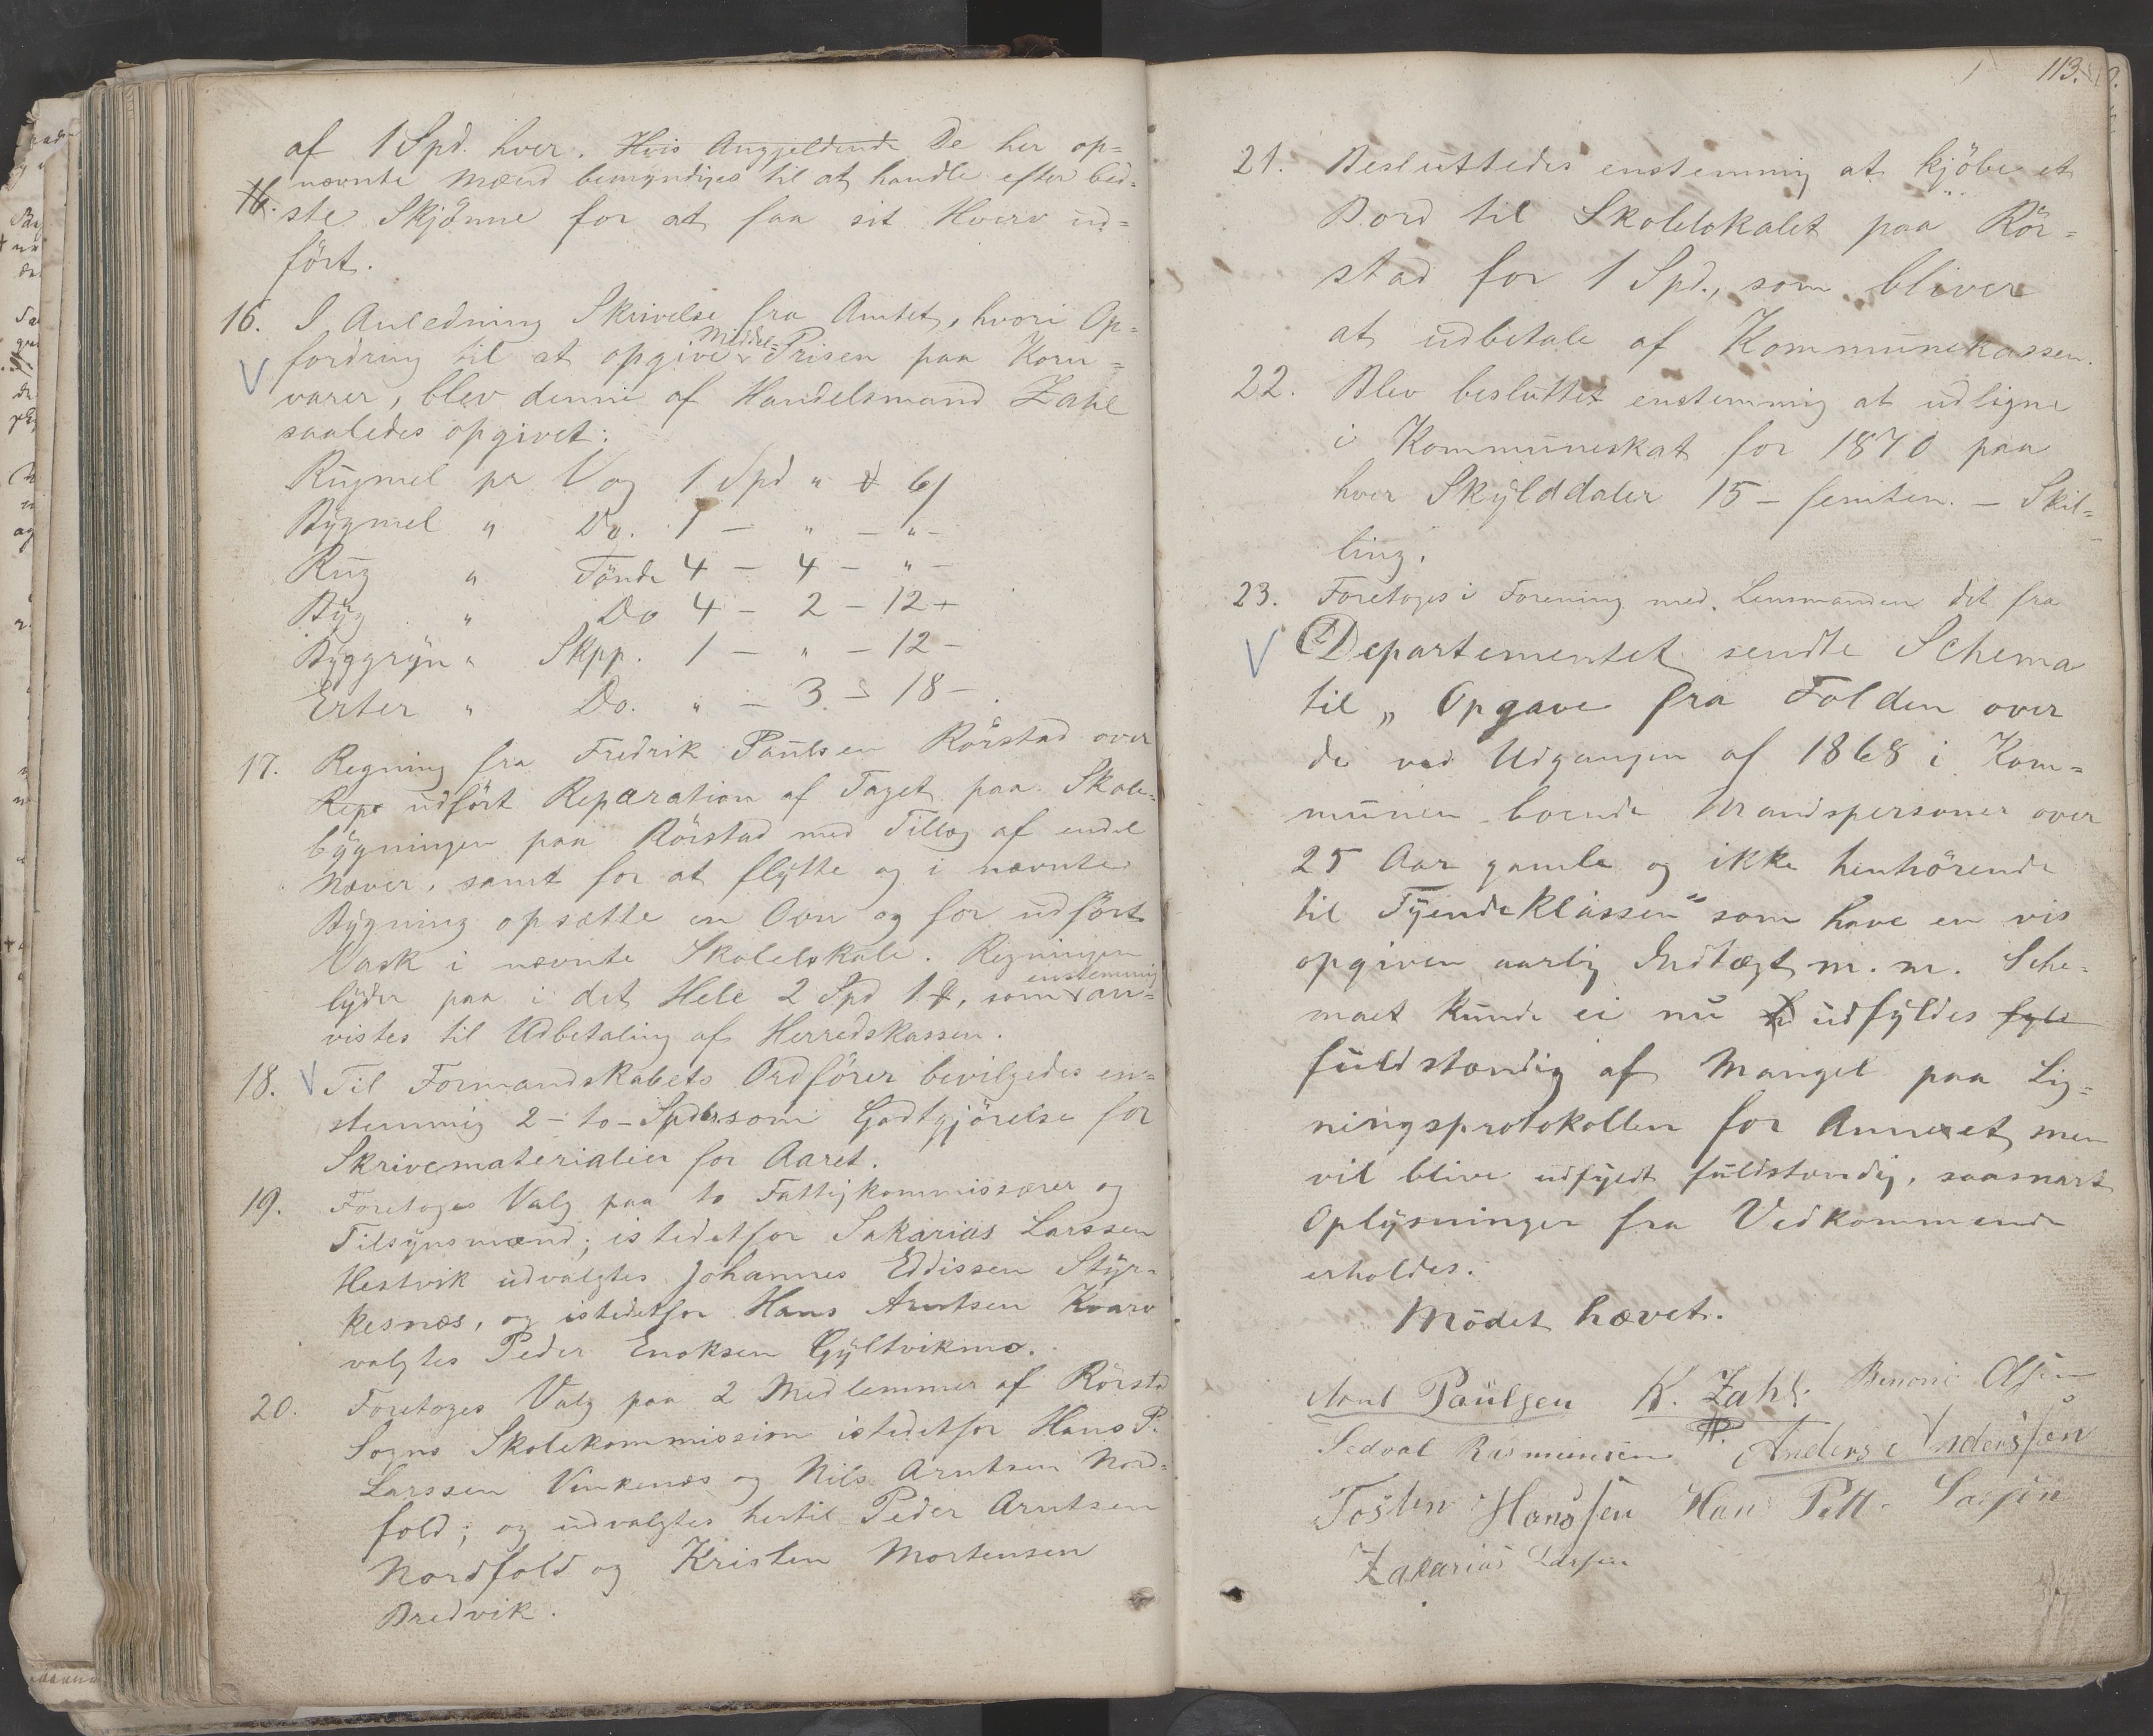 af 1 Spd. hver. Hvis Angjeldende De her op=
nævnte Mænd bemyndiges til at handle efter bed-
16. ste Skjønne for at faa sit Hverv ud=
ført.
16. I Anledning Skrivelse fra Amtet, hvori Op=
fordring til at opgive Middel= Prisen paa Korn=
varer, blev denne af Handelsmand Zahl
saaledes opgivet:
Rugmel pr Vog 1 Spd " 6/
Bygmel " Do. 1 — " — " —
Rug " Tønde 4 — 4 — " —
Byg " Do 4 — 2 — 12 —
Byggryn " Skpp. 1 — " — 12 —
Erter " Do. " — 3 — 18 —
17. Regning fra Fredrik Paulsen Rørstad over
Repr udført Reparation af Taget paa Skole=
bygningen paa Rørstad med Tillæg af endel
Næver, samt for at flytte og i nævnte
Bygning opsætte en Ovn og for udført
Vask i nævnte Skolelokale. Regningen
lyder paa i det Hele 2 Spd 1 , som enstemmig an=
vistes til Udbetaling af Herredskassen.
18. Til Formandskabets Ordfører bevilgedes en=
stemmig 2 - to - Spdlr. som Godtgjørelse for
Skrivematerialier for Aaret.
19. Foretoges Valg paa to Fattigkommissærer og
Tilsynsmænd; istedetfor Sakarias Larssen
Hestvik udvalgtes Johannes Eddissen Styr-
kesnæs, og istedetfor Hans Arntsen Kvarv
valgtes Peder Enoksen Gyltvikmo.
20. Foretoges Valg paa 2 Medlemmer af Rørstd
Sogns Skolekommission istedetfor Hans P.
Larssen Vinkenæs og Nils Arntsen Nord=
fold; og udvalgtes hertil Peder Arntsen
Nordfold og Kristen Mortensen
Bredvik.
113.
21. Besluttedes enstemmig at kjøbe et
Bord til Skolelokalet paa Rör=
stad for 1 Spd., som bliver
at udbetale af Kommunekassen.
22. Blev besluttet enstemmig at udligne
i Kommuneskat for 1870 paa
hver Skylddaler 15 - femten. - Skil=
ling.
23. Foretoges i Forening med Lensmanden det fra
Departementet sendte Schema
til „Opgave fra Folden over
de ved Udgangen af 1868 i Kom=
munen boende Mandspersoner over
25 Aar gamle og ikke henhörende
til Tyendeklassen" som have en vis
opgiven aarlig Indtægt m. m. Sche=
maet kunde ei nu udfyldes fyld
fuldstændig af Mangel paa Lig=
ningsprotokollen for Annexet, men
vil blive udfyldt fuldstændig, saasnart
Oplysninger fra Vedkommende
erholdes.
Mödet hævet.
Arnt Paulsen K. Zahl. Benoni Olsen
Sedval Rasmussen Anders Anderssen
Tosten Hanssen Hans Pett. Larsen
Zakarias Larsen